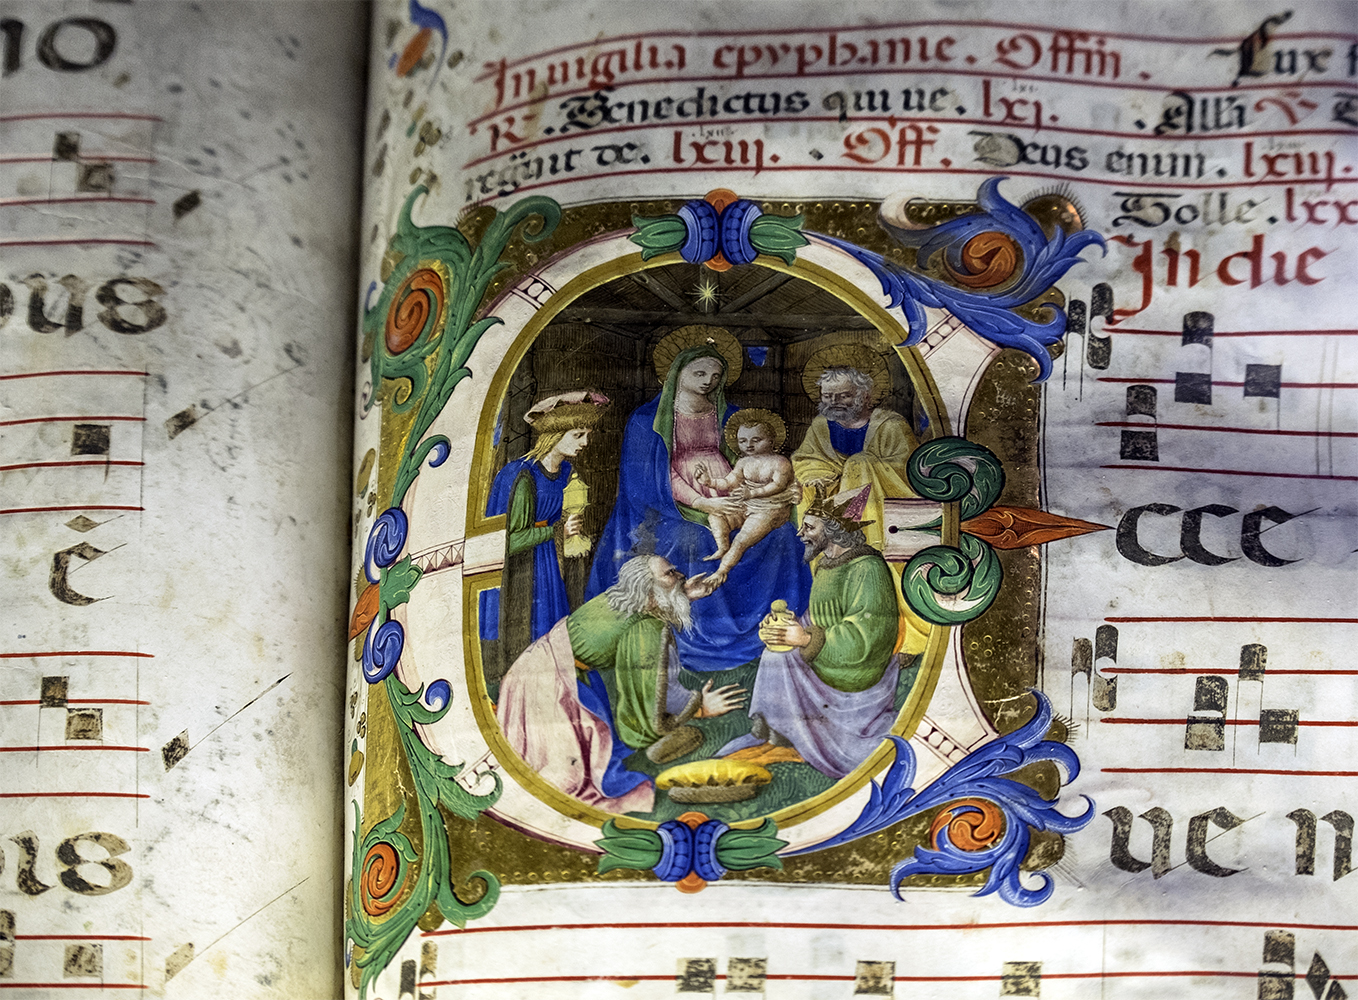 io
ous
ē
bis
In uigilia epyphanie. Offm̄. Lux f
R. Benedictus qui ue. lxj. All'a V D
regn̄t de. lxiij. Off. Deus enim. lxiij.
Tolle. lxx
In die
Ecce
ue n